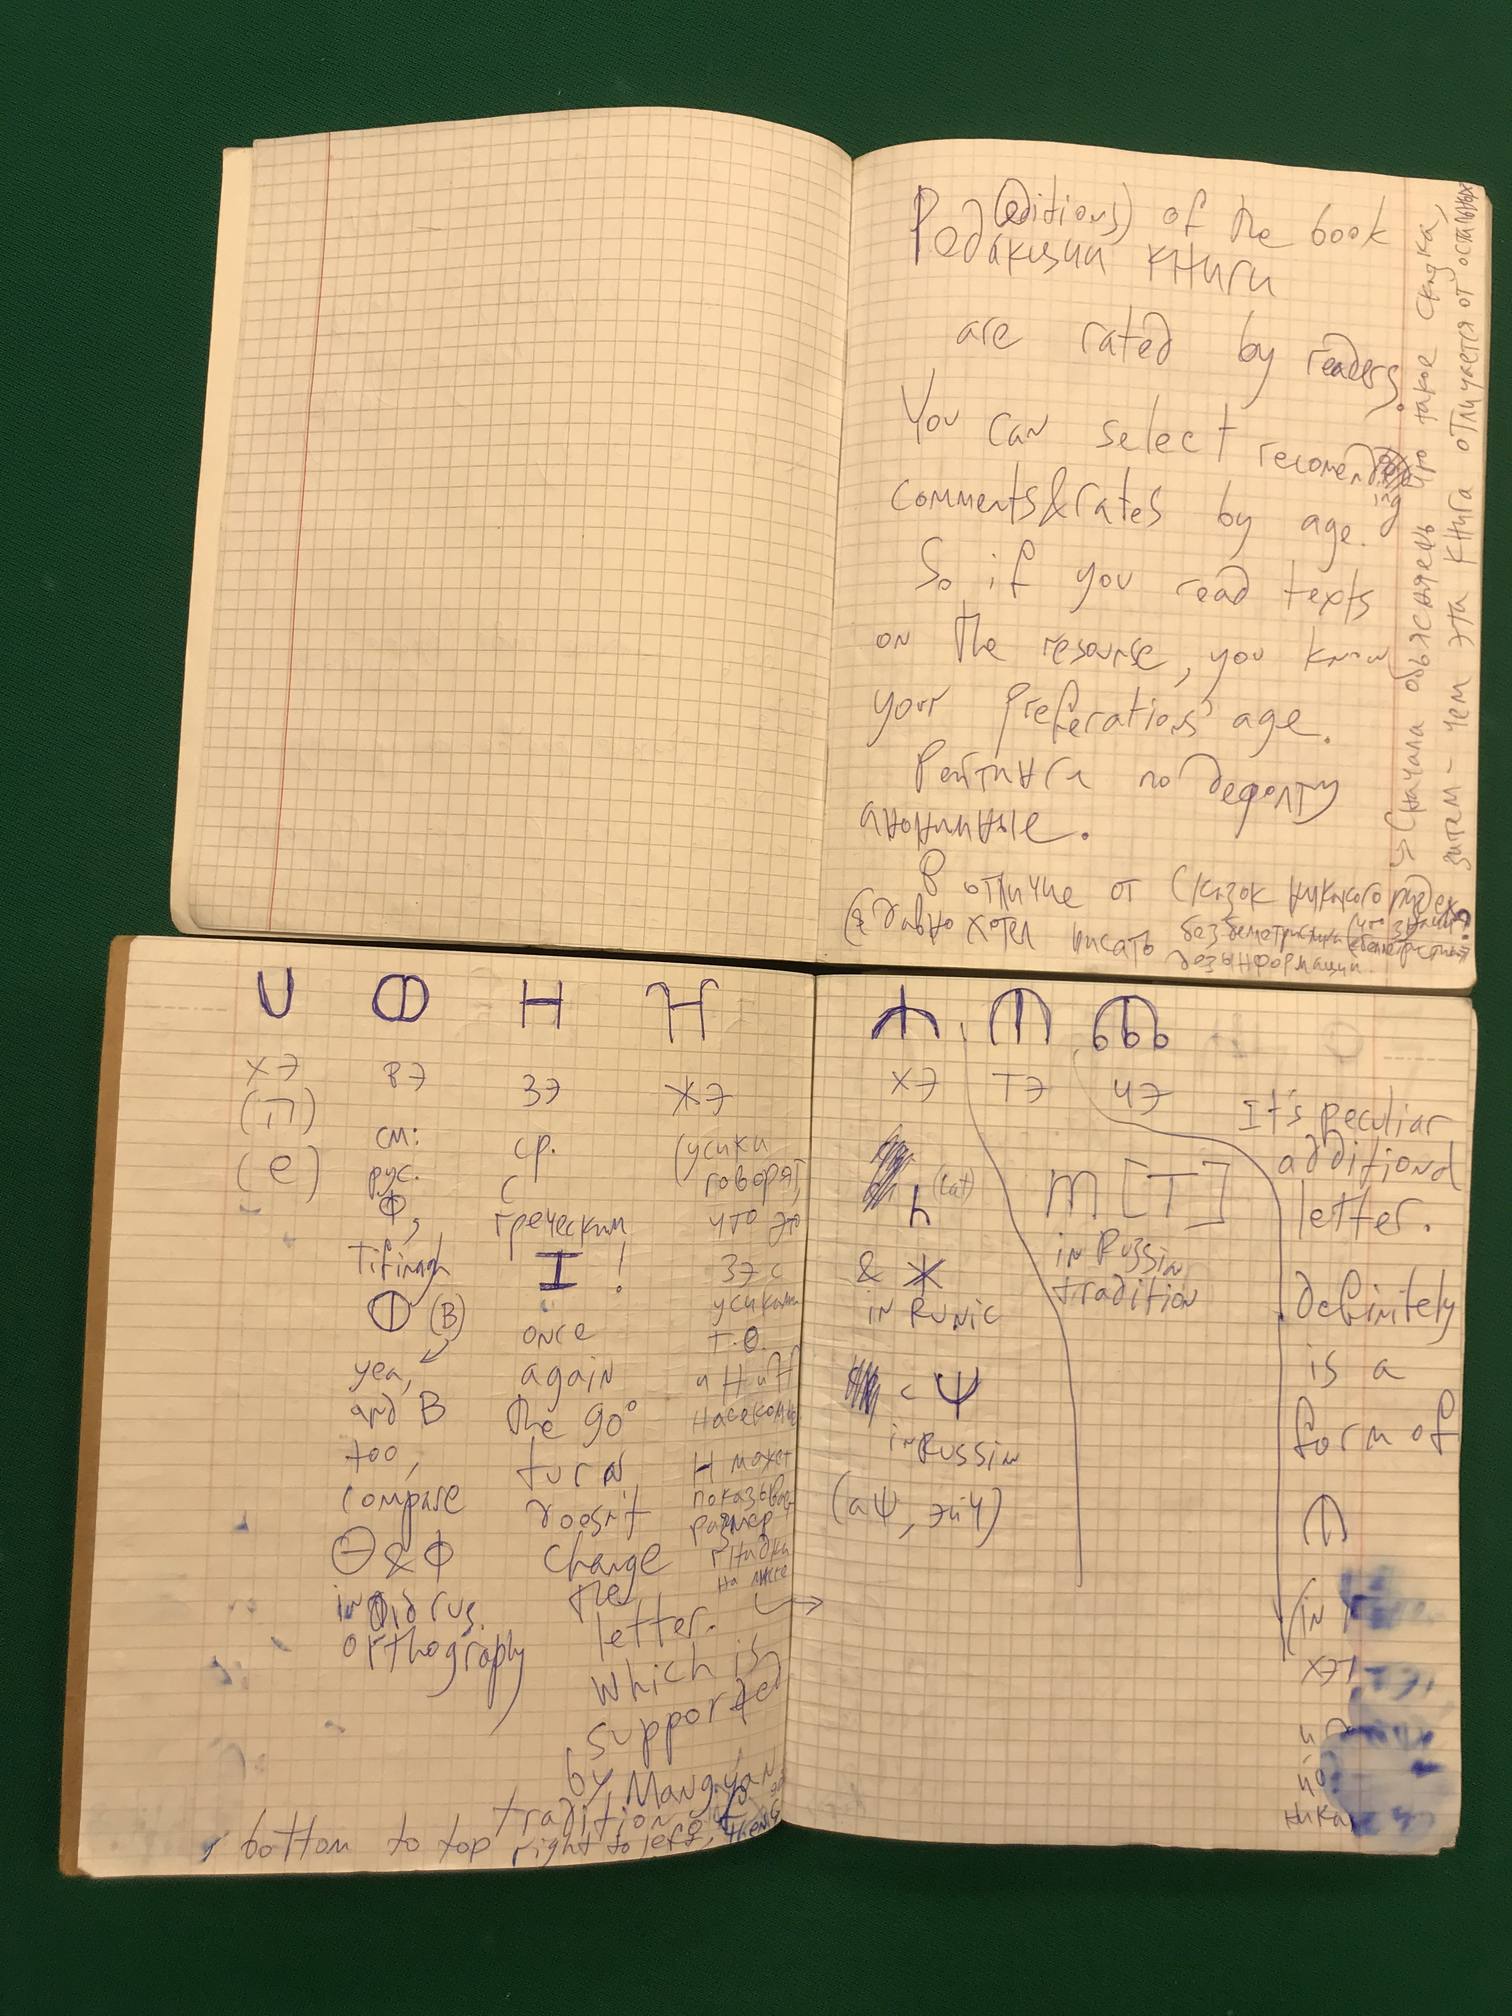 (editions) of the book
Редакции книги
are rated by readers.
You can select recomend
comments&rates by age.
So if you read texts
on the resourse, you know
your preferations' age.
Рейтинги по дефолту
анонимные.
В отличие от Сказок никакого
(Я давно хотел писать без
дезынформации.
Сначала объясняешь что такое скидка,
затем - чем эта книга отличается от остальных
U Ф H
хэ
(ח)
(e)
вэ
см:
рус.
Ф,
Tifinagh
Ф (B)
yea,
and B
too,
compare
Θ & Ф
in Old rus.
orthography
зэ
ср.
с
греческим
I !
once
again
the 90°
turn
doesn't
change
the
letter.
Which is
supported
by Mangyan
tradition of
bottom to top right to left, then
жэ
(усики
говорят,
что это
зэ с
усиками
т.о.
H может
показывать
размер
гнидки
на листе
хэ
h (lat)
& ж
in Runic
< Ψ
in Russin
(аψ, эйч)
тэ
m [T]
in Russin
tradition
чэ
It's peculiar
additional
letter.
definitely
is a
form of
(in
хэт